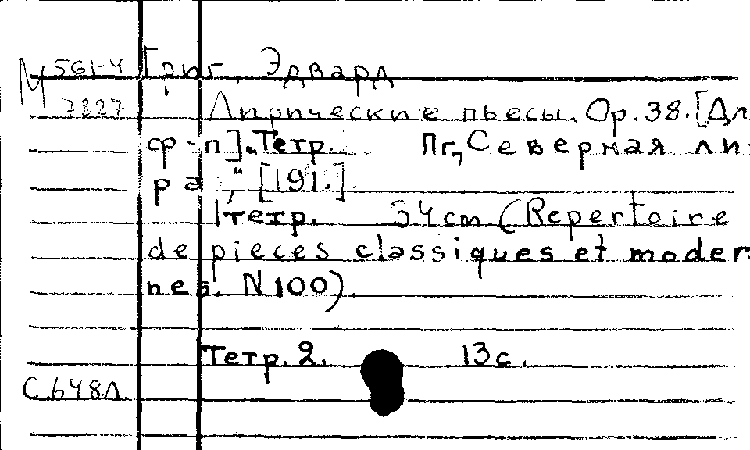 М 561-4 Григ, Эдвард
7827 Лирические пьесы. Op.38. [Дл
ф-п]. Тетр. Пг, „Северная ли
ра", [191.]
1 тетр. 34cm (Repertoire
de pieces classiques et moder
nes. N 100).
Тетр. 2. 13 с.
С 648л